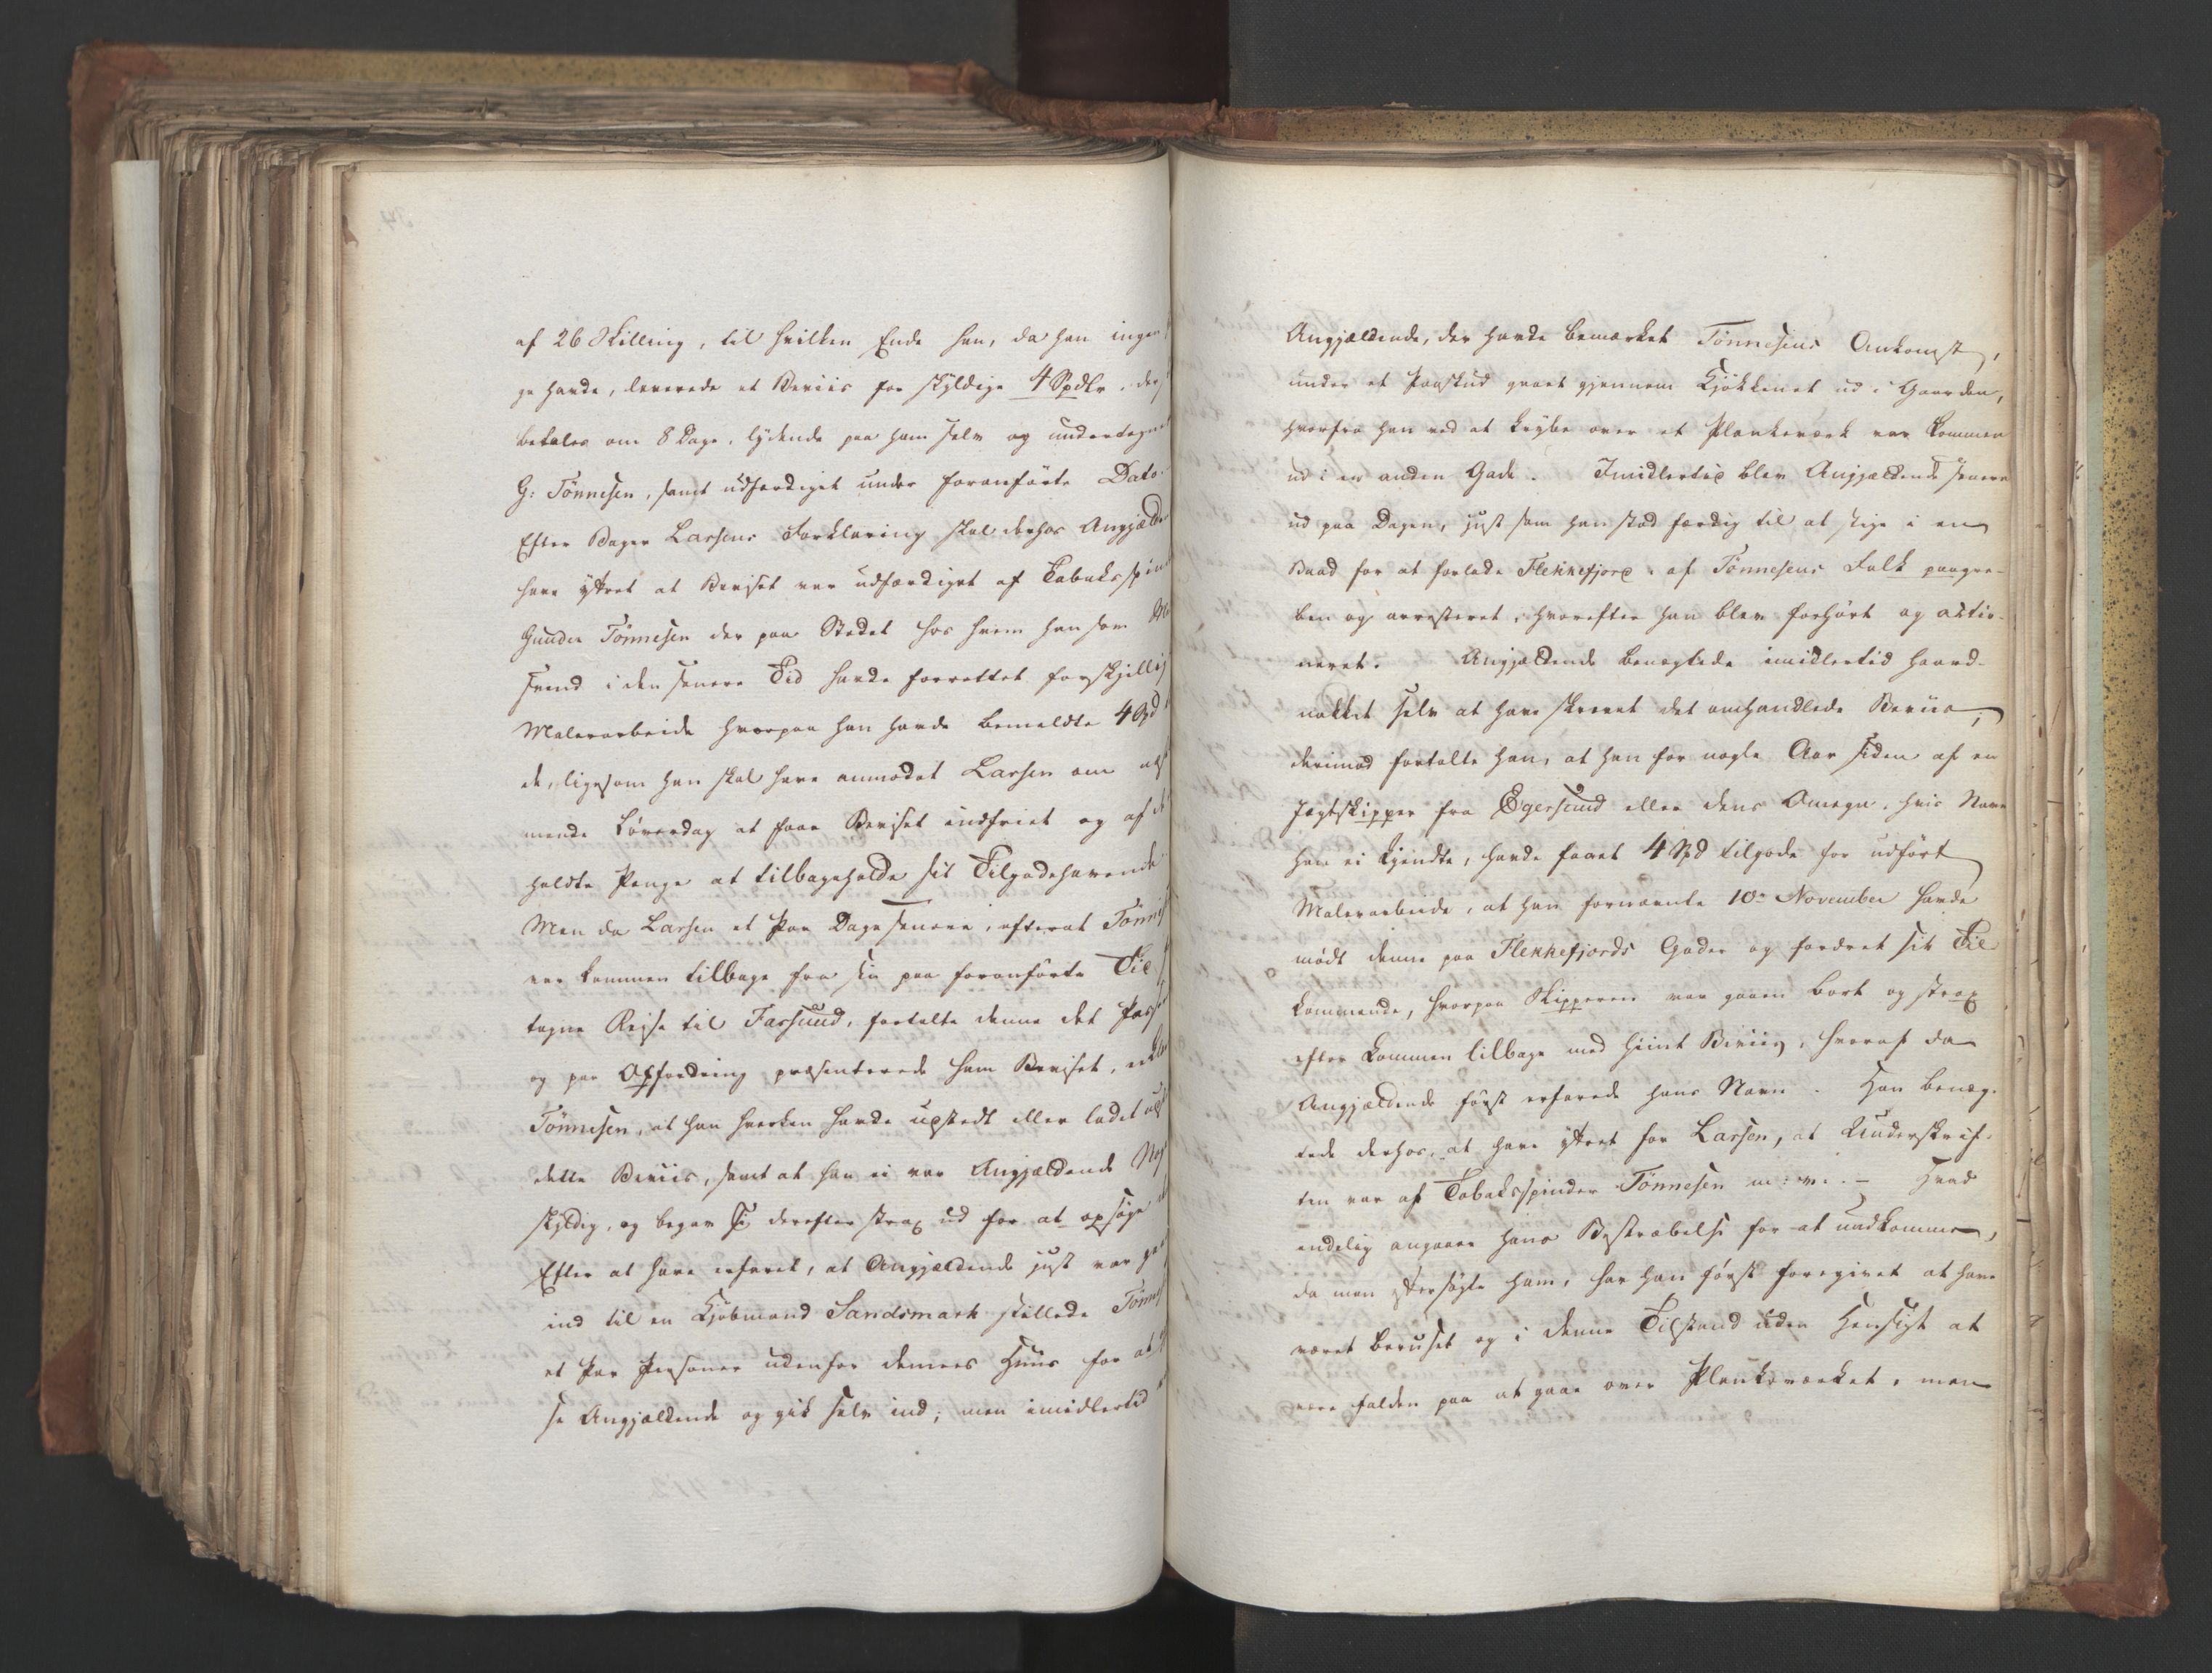 af 26 Skilling, til hvilken Ende han, da han ingen
ge havde, leverede et Beviis for skyldige 4 Spdlr. der
betales om 8 Dage, lydende paa ham selv og undertegnet
G: Tönnesen, samt udfærdiget under foranførte Dato.
Efter Bager Larsens Forklaring skal derhos Angjælde
have yttret at Beviset var udfærdiget af Tobaksspin
Gunder Tönnesen der paa Stedet hos hvem han som Ma
svend i den senere Tid havde forrettet forskjellig
Malerarbeide hvorpaa han havde bemeldte 4 Spd
de, ligesom han skal have anmodet Larsen om næst
mende Löverdag at faae Beviset indfriet og af de
holdte Penge at tilbageholde sit Tilgodehavende.
Men da Larsen et Par Dage senere, efterat Tönnes
var kommen tilbage fra sin paa foranførte Tid
tagne Rejse til Farsund, fortalte denne det Pass
og paa Opfordring præsenterede ham Beviset, erklæ
Tönnesen, at han hverken havde udstedt eller ladet udst
dette Beviis, samt at han ei var Angjældende Nog
skyldig, og begav sig derefter strax ud for at opsöge
Efter at have erfaret, at Angjældende just var gaa
ind til en Kjøbmand Sandsmark stillede Tönnes
et Par Personer udenfor dennes Huus for at
se Angjældende og gik selv ind; men imidlertid
Angjældende, der havde bemærket Tönnesens Ankomst,
under et Paaskud gaaet gjennem Kjøkkenet ud i Gaarden,
hvorfra han ved at krybe over et Plankeværk var kommen
ud i en anden Gade. Imidlertid blev Angjældende senere
ud paa Dagen, just som han stod færdig til at stige i en
Baad for at forlade Flekkefjord, af Tönnesens Folk paagre-
ben og arresteret, hvorefter han blev forhört og aktio-
neret. Angjældende benægtede imidlertid haard-
nakket selv at have skrevet det omhandlede Beviis,
derimod fortalte han, at han for nogle Aar siden af en
Jagtskipper fra Egersund eller dens Omegn, hvis Navn
han ei kjendte, havde faaet 4 Spd tilgode for udført
Malerarbeide, at han fornævnte 10de November havde
mödt denne paa Flekkefjords Gader og fordret sit Til
kommende, hvorpaa Skipperen var gaaen bort og strax
efter kommen tilbage med hiint Beviis, hvoraf da
Angjældende først erfarede hans Navn. Han benæg-
tede derhos, at have yttret for Larsen, at Underskrif-
ten var af Tobaksspinder Tönnesen m: v: . – Hvad
endelig angaaer hans Bestræbelse for at undkomme,
da man eftersøgte ham, har han först foregivet at have
været beruset og i denne Tilstand uden Hensigt at
være falden paa at gaae over Plankeværket, men